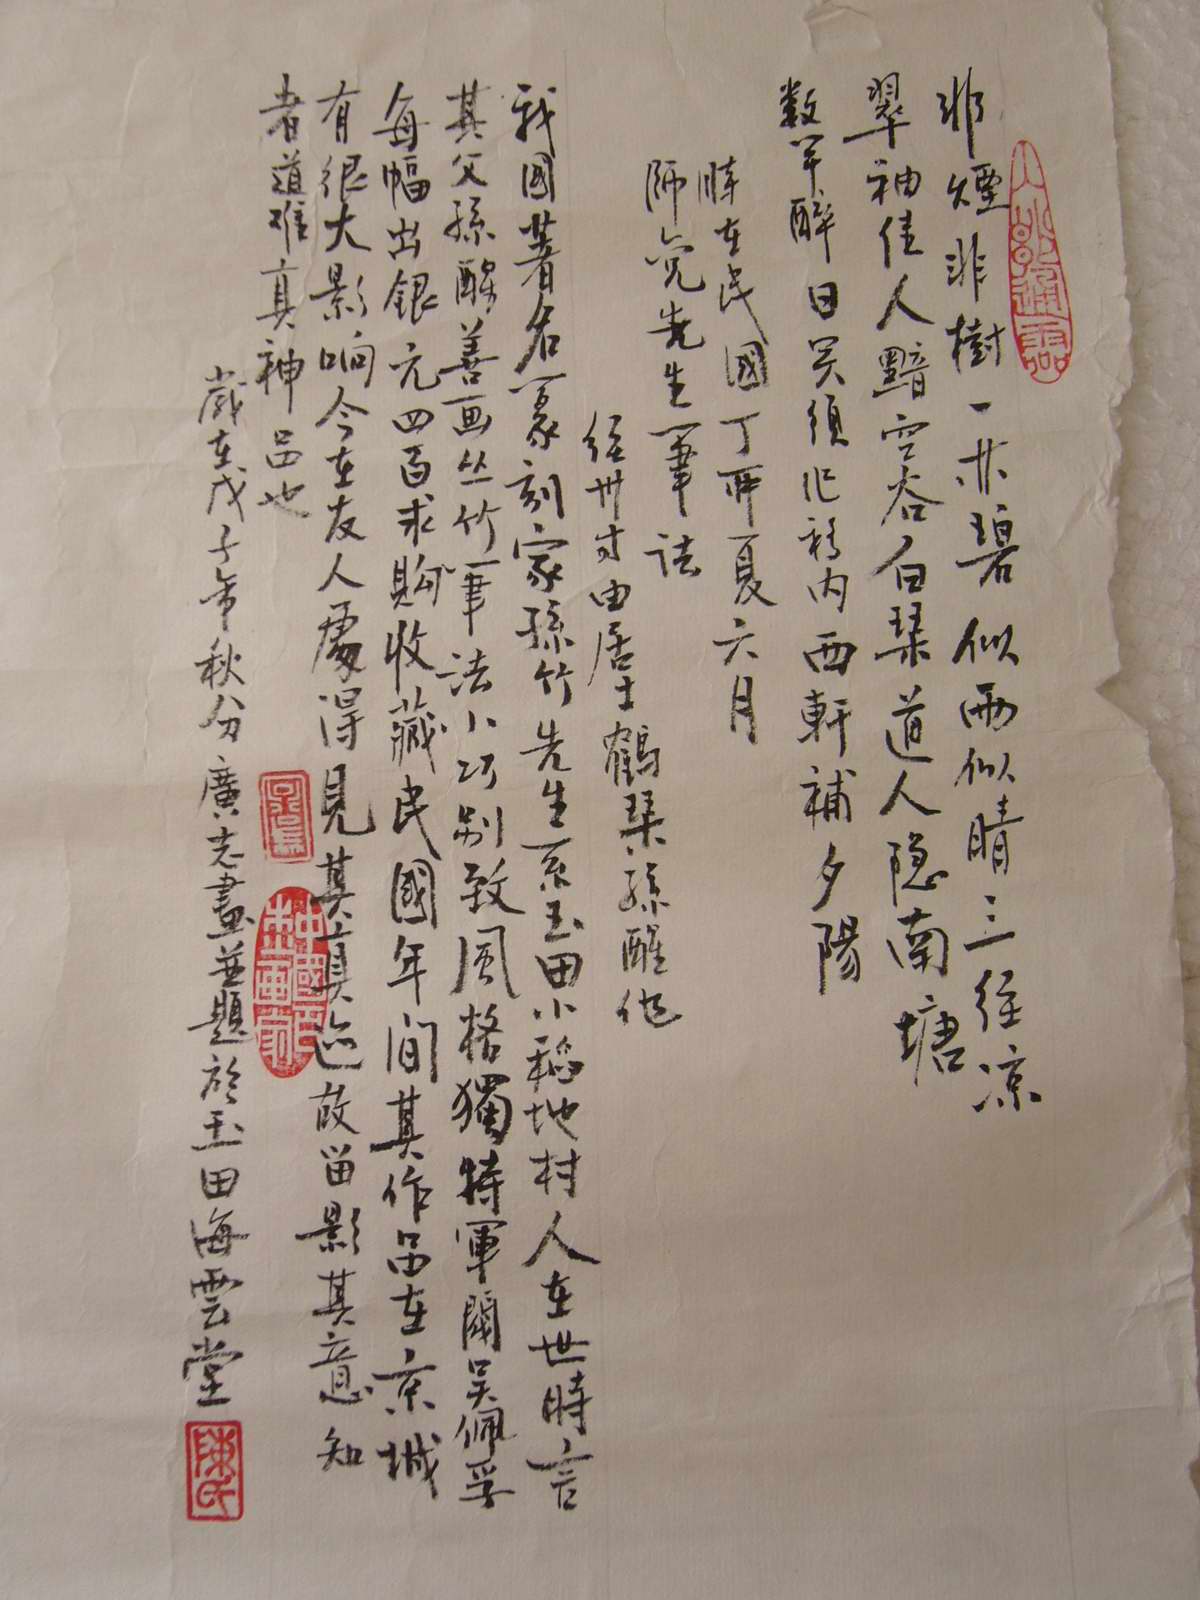 非煙非樹一林碧似雨似晴三径凉
翠袖佳人黯空谷白琹道人隐南塘
数竿醉日笑須化移内西軒補夕陽
時在民國丁酉夏六月
師亮先生筆法
经卅寸由居士鶴琹孫醒作
我國著名篆刻家孫竹先生系玉田小稻地村人在世時言
其父孫醒善画丛竹筆法小巧别致風格獨特軍閥吴佩孚
每幅出銀元四百求购收藏民國年间其作品在京城
有很大影响今在友人處得見其真迹故留影其意知
者道难真神品也
歲在戊子年秋分廣志畫並題於玉田海雲堂
陳氏